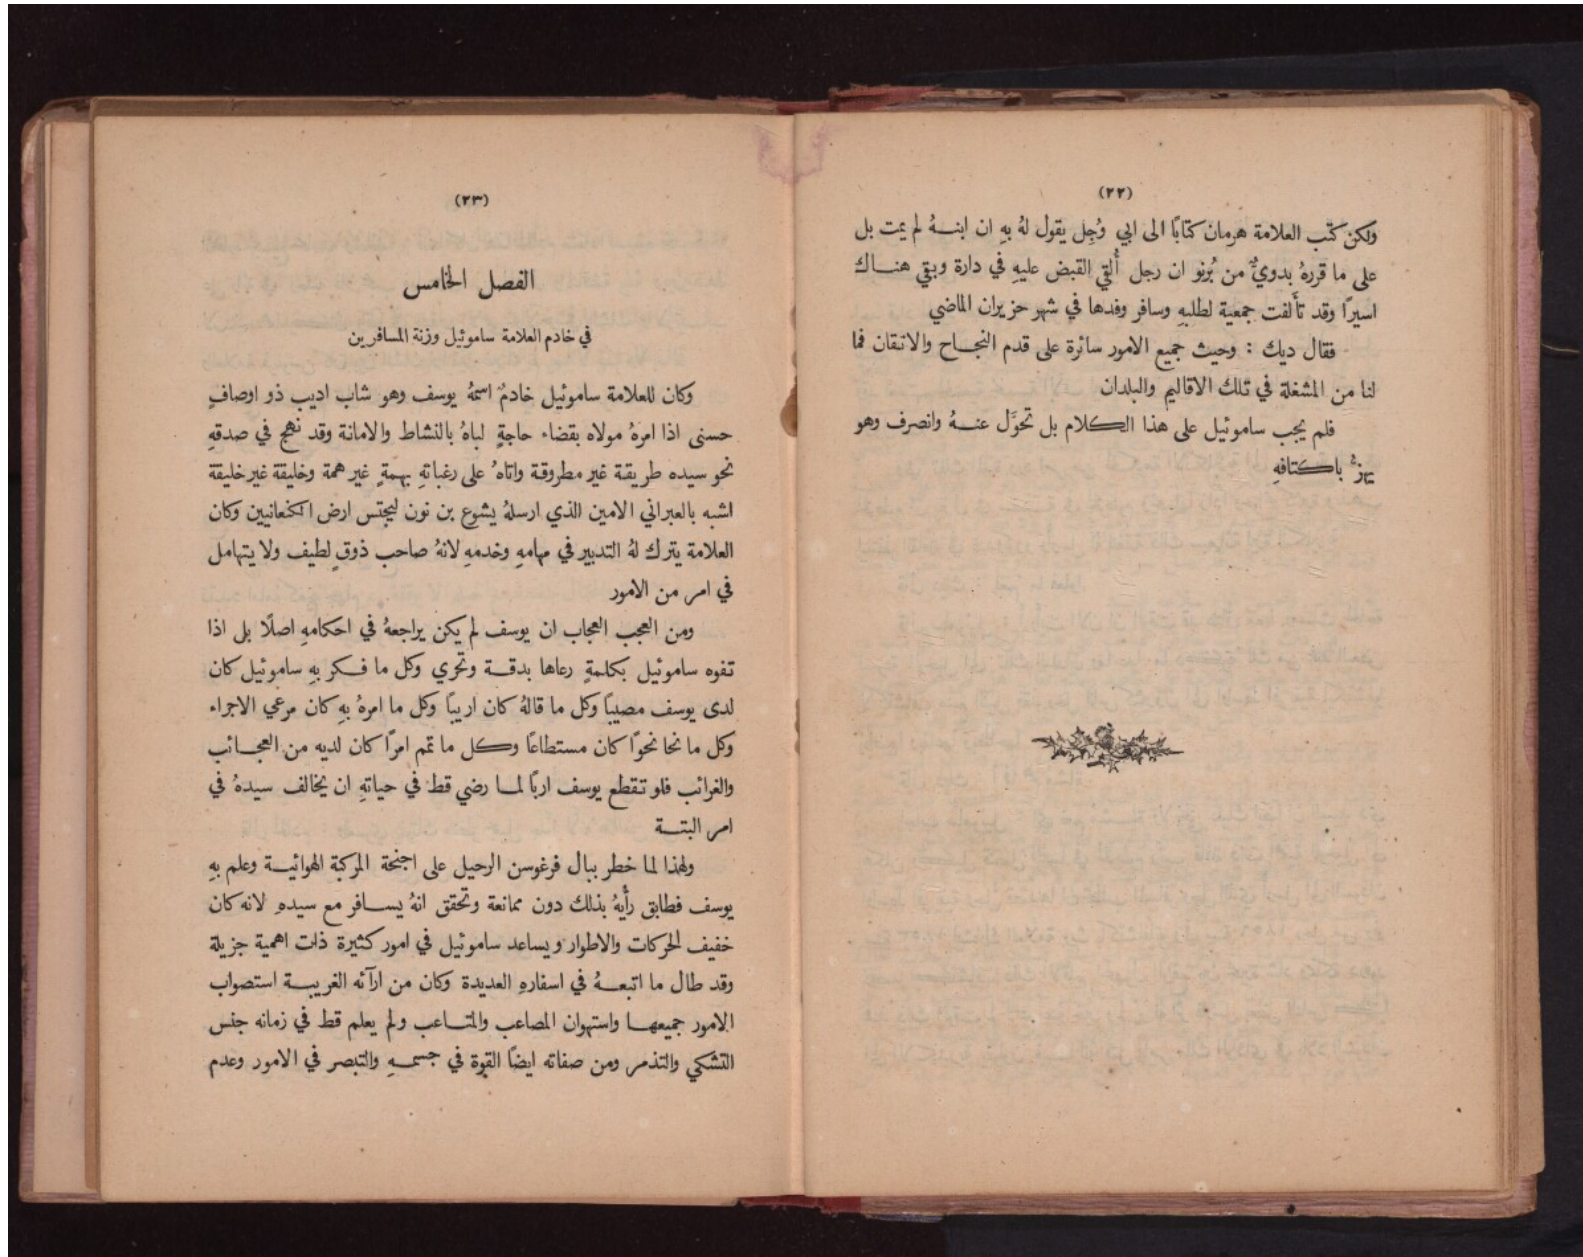 (٢٢)
ولكن كتب العلامة هرمان كتابًا الى ابي وُجِل يقول لهُ بهِ ان ابنــهُ لم يمت بل
على ما قررهُ بدويٌّ من بُرنو ان رجل أُلقي القبض عليهِ في دارة وبقي هنــاك
اسيرًا وقد تأَلفت جمعية لطلبهِ وسافر وفدها في شهر حزيران الماضي
فقال ديك : وحيث جميع الامور سائرة على قدم النجــاح والاتقان فما
لنا من المشغلة في تلك الاقاليم والبلدان
فلم يجب ساموئيل على هذا الكلام بل تحوَّل عنــهُ وانصرف وهو
يهزُّ باكتافهِ
(٢٣)
الفصل الخامس
في خادم العلامة ساموئيل وزنة المسافرين
وكان للعلامة ساموئيل خادمٌ اسمهُ يوسف وهو شاب اديب ذو اوصافٍ
حسنى اذا امرهُ مولاه بقضاء حاجةٍ لباهُ بالنشاط والامانة وقد نهج في صدقهِ
نحو سيده طريقة غير مطروقة واتاهُ على رغباتهِ بهمةٍ غير همة وخليقة غير خليقة
اشبه بالعبراني الامين الذي ارسلهُ يشوع بن نون ليجتس ارض الكنعانيين وكان
العلامة يترك لهُ التدبير في مهامهِ وخدمهِ لانهُ صاحب ذوقٍ لطيف ولا يتهامل
في امر من الامور
ومن العجب العجاب ان يوسف لم يكن يراجعهُ في احكامهِ اصلًا بل اذا
تفوه ساموئيل بكلمةٍ رعاها بدقــة وتحري وكل ما فــكر بهِ ساموئيل كان
لدى يوسف مصيبًا وكل ما قالهُ كان اريبًا وكل ما امرهُ بهِ كان مرعي الاجراء
وكل ما نحا نحوًا كان مستطاعًا وكل ما تمم امرًا كان لديه من العجــائب
والغرائب فلو تقطع يوسف اربًا لمــا رضي قط في حياتهِ ان يخالف سيدهُ في
امر البتــة
ولهذا لما خطر ببال فرغوسن الرحيل على اجنحة المركبة الهوائيــة وعلم بهِ
يوسف فطابق رأيهُ بذلك دون ممانعة وتحقق انهُ يســافر مع سيدهِ لانه كان
خفيف الحركات والاطوار ويساعد ساموئيل في امور كثيرة ذات اهمية جزيلة
وقد طال ما اتبعــهُ في اسفارهِ العديدة وكان من ارآئه الغريبــة استصواب
الامور جميعهــا واستهوان المصاعب والمتــاعب ولم يعلم قط في زمانه جنس
التشكي والتذمر ومن صفاته ايضًا القوة في جسمــهِ والتبصر في الامور وعدم